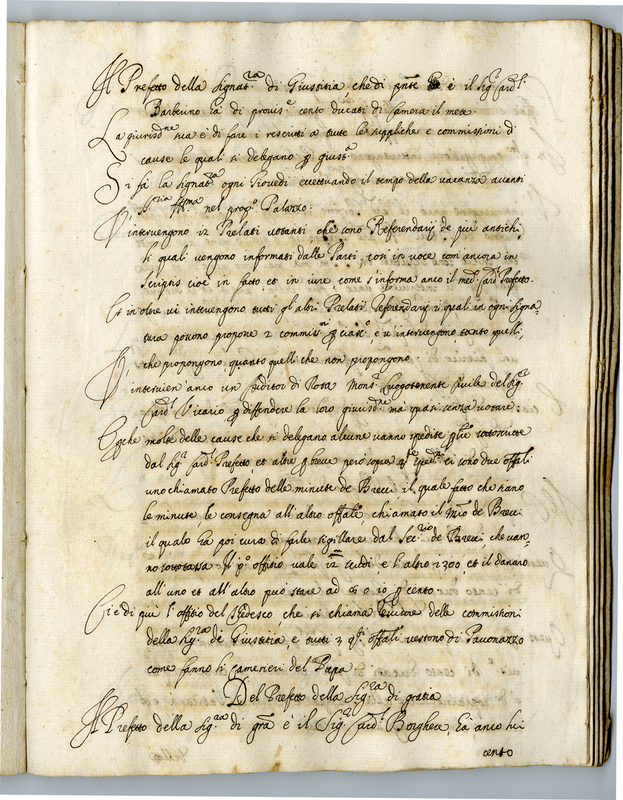 Il Prefetto della Signat.ra di Giustitia, che di pñte è il Sig.r Card.l
Barberino ha di provis.e cento ducati di Camera il mese.
La giurisd.ne sua è di fare i rescritti a tutte le suppliche e commissioni di
cause le quali si delegano p giust.a
Si fà la Signat.ra ogni Giovedi eccettuando il tempo della vacanza avanti
nel prop.o Palazzo.
V'intervengono 12 Prelati votanti che sono Referendarij de più antichi
li quali vengono informati dalle Parti, così in voce com'ancora in
scriptis cioè in facto et in iure come s'informa anco il med.o Card.l Prefetto.
Et in oltre vi intervengono tutti gl'altri Prelati Referendarij i quali in ogni Signa-
tura possono proporre 2 commiss.ni p ciasc.o e vi intervengono tanto quelli,
che propongono, quanto quelli che non propongono.
V'intervien anco un Auditor di Rota Mons.r Luogotenente Civile del Sig.r
Card.l Vicario p diffendere la loro giurisd.ne ma quasi senza votare.
E p che molte delle cause che si delegano alcune vanno spedite sottoscritte
dal Sig.r Card.l Prefetto et altre p breve però sopra ci sono due offitiali
uno chiamato Prefetto delle minute de Brevi il quale fatto che siano
le minute le consegna all'altro offitiale chiamato il Mro de Brevi
il quale ha poi cura di farle sigillare dal Sec.rio de Brevi, che van-
no sotto tassa. Il p.o offitio vale 12 scudi e l'altro 1300, et il danaro
all'uno et all'altro può stare ad 8 o 10 p cento.
Ci è di più l'offitio del Tedesco che si chiama delle commissioni
della Sig.ra di Giustitia, e tutti 3 q.ti offitiali vestono di Pavonazzo
come fanno li camerieri del Papa
Del Prefetto della Sig.ra di gratia
Il Prefetto della Sig.ra di grã è il Sig.r Card.l Borghese, ha anco lui
cento